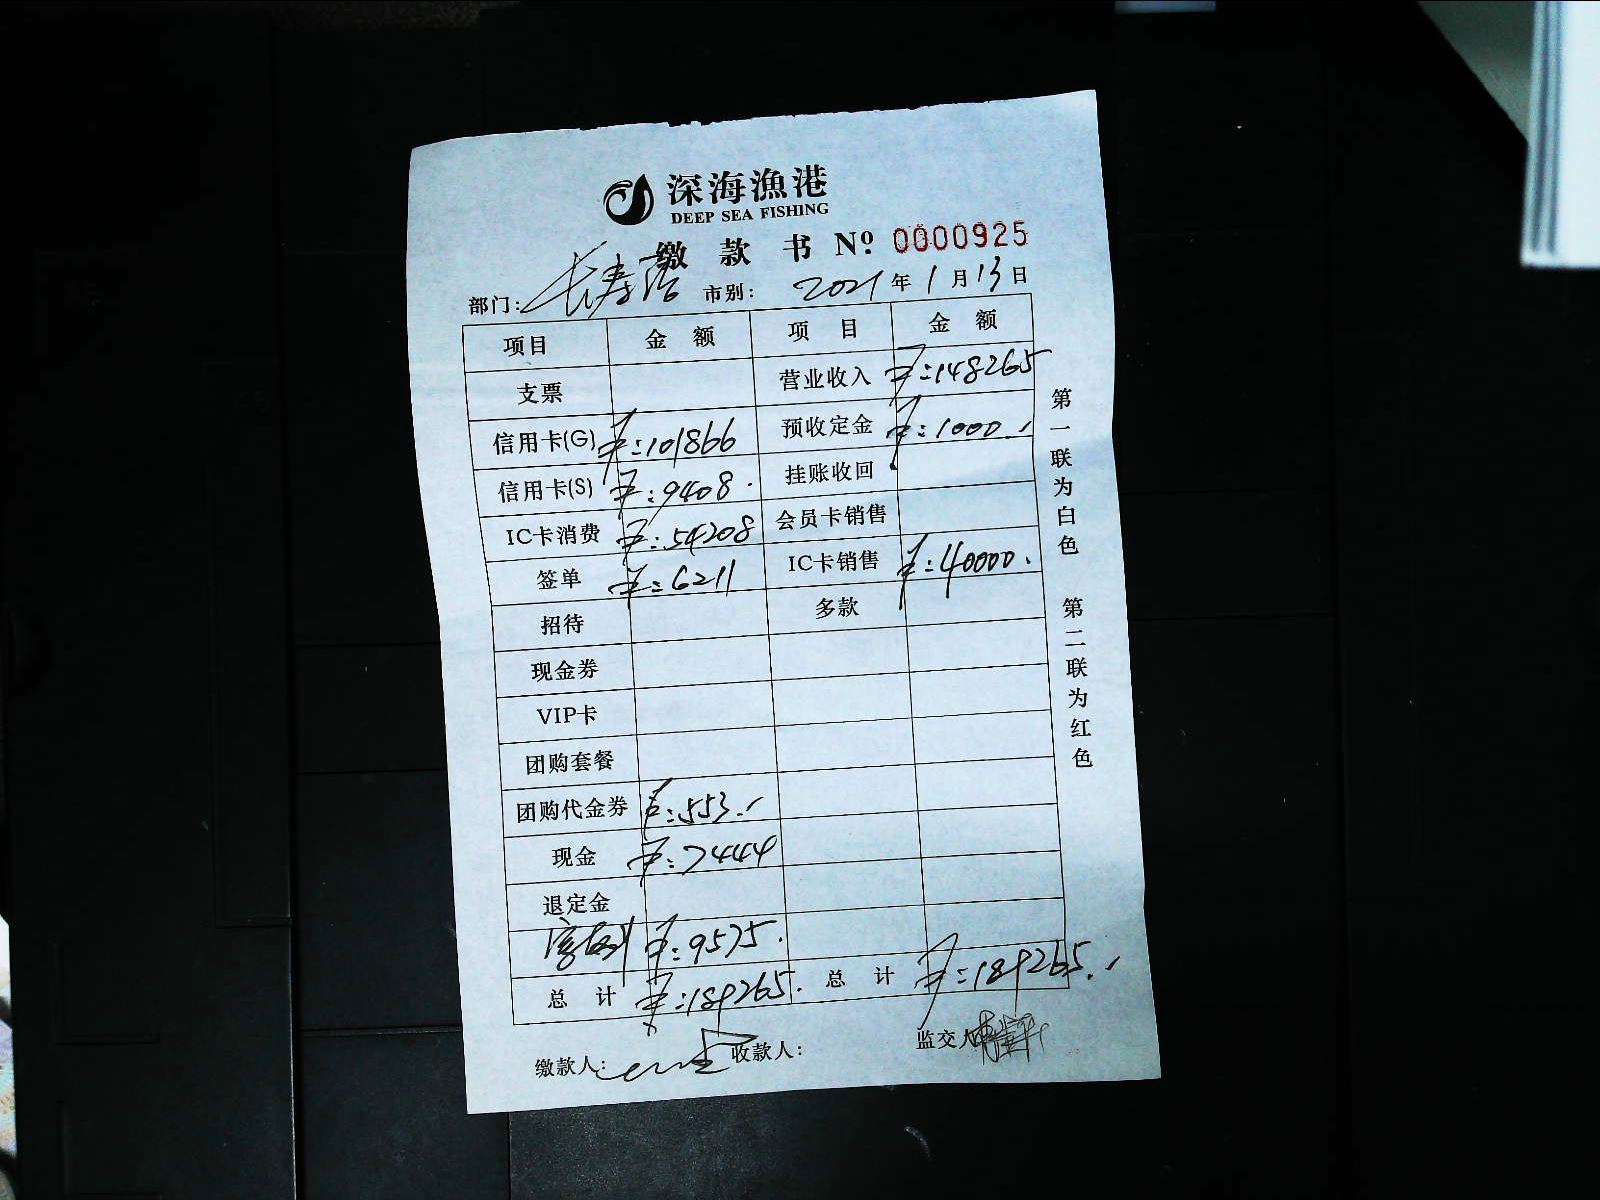 深海漁港
DEEP SEA FISHING
缴款书 Nº 0000925
部门：长寿路 市别： 2021年1月13日
项目 金额 项目 金额
支票 营业收入 ¥:148265
信用卡(G) ¥:101866 预收定金 ¥:1000.
信用卡(S) ¥:9408. 挂账收回
IC卡消费 ¥:54208 会员卡销售
签单 ¥:6211 IC卡销售 ¥:40000.
招待 多款
现金券
VIP卡
团购套餐
团购代金券 ¥:553.
现金 ¥:7444
退定金
¥:9575.
总计 ¥:189265. 总计 ¥:189265.
缴款人： 收款人： 监交人
第一联为白色 第二联为红色